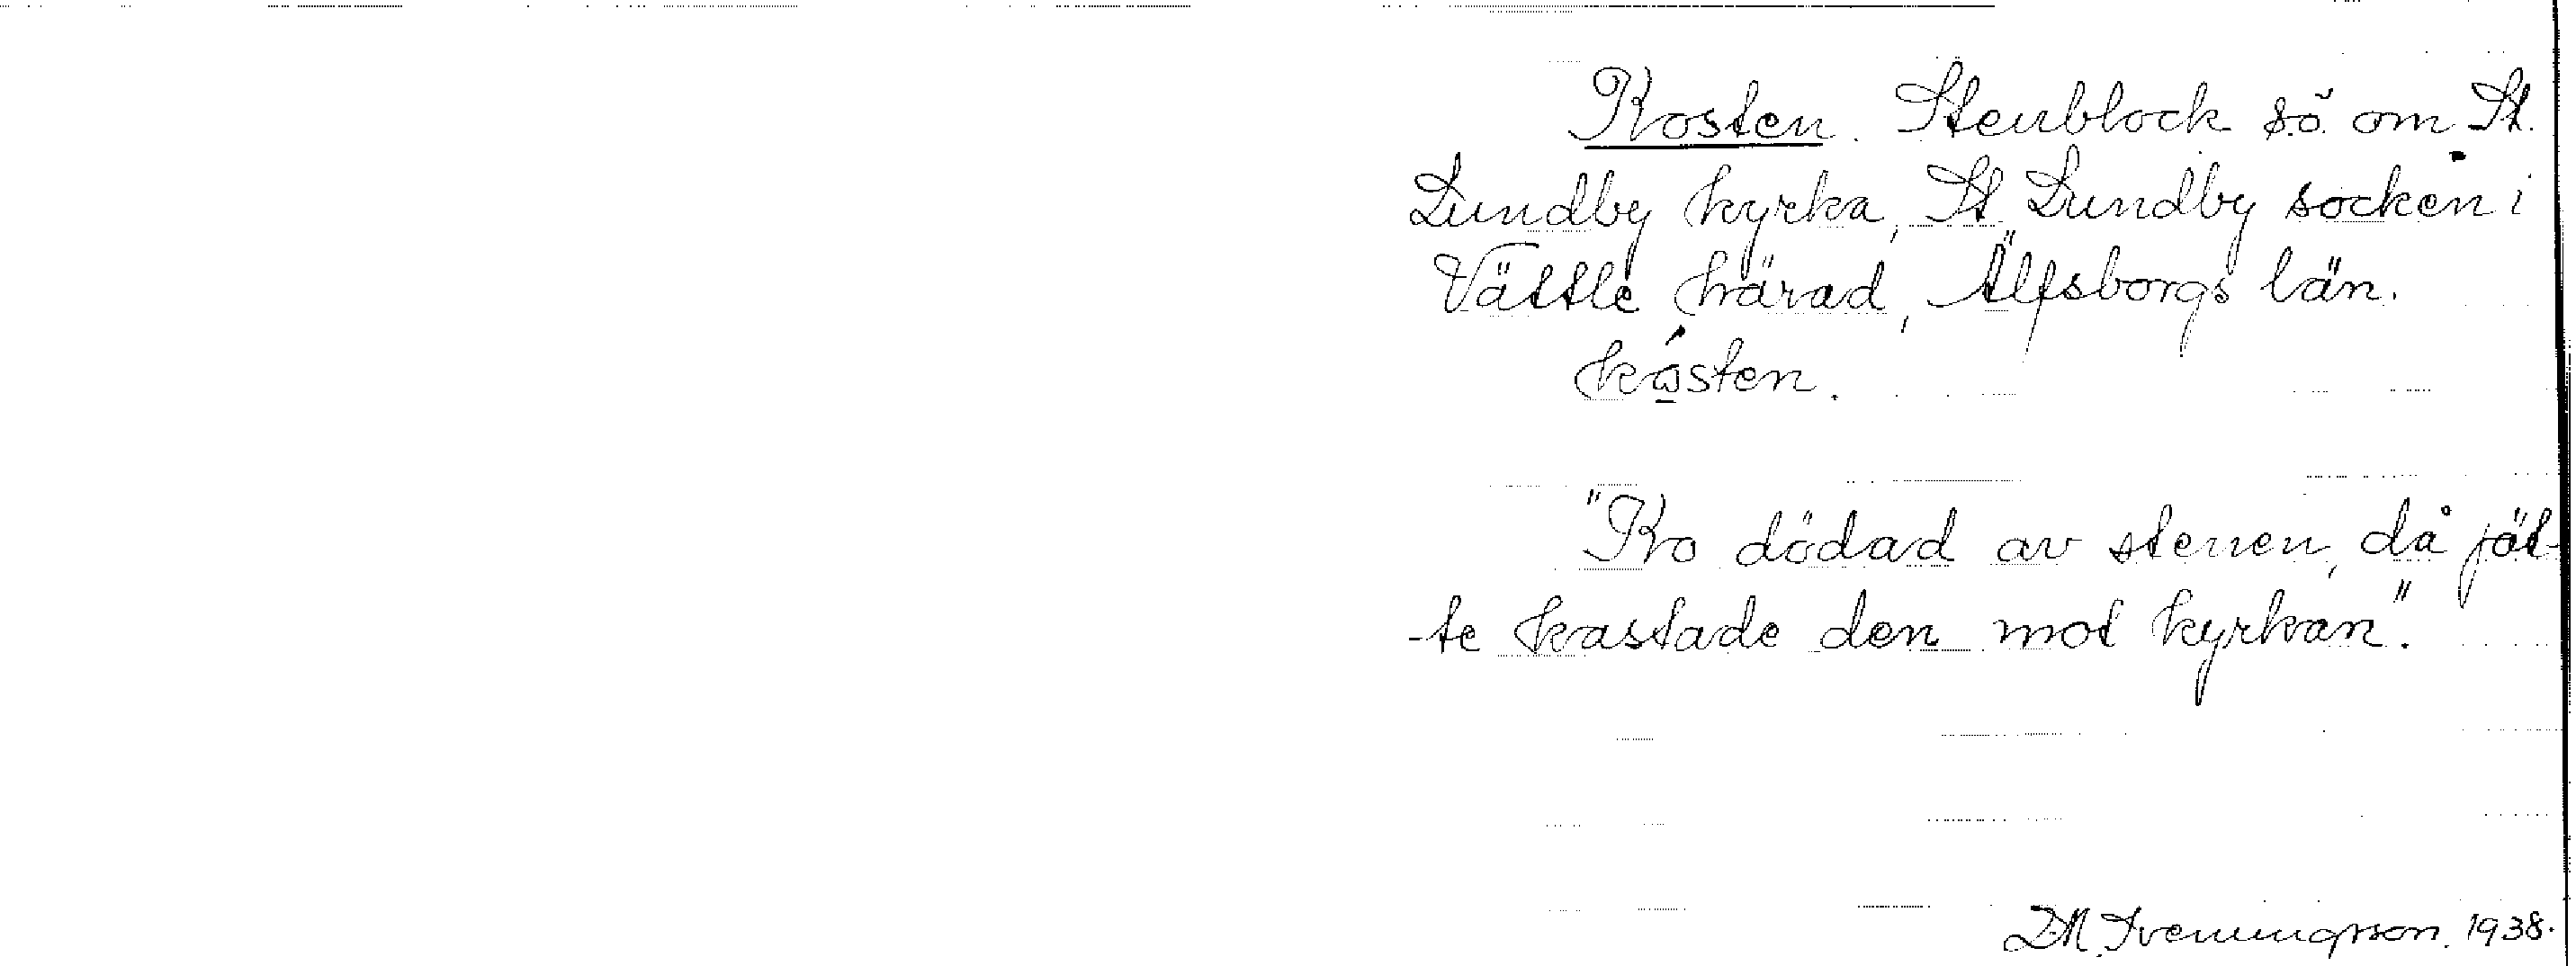 Kosten. Stenblock s.ö. om St.
Lundby kyrka, St. Lundby socken i
Vättle härad, Älfsborgs län.
kɷ̱́sten.
"Ko dödad av stenen, då jät-
-te kastade den mot kyrkan".
D.M. Svenningsson. 1938.